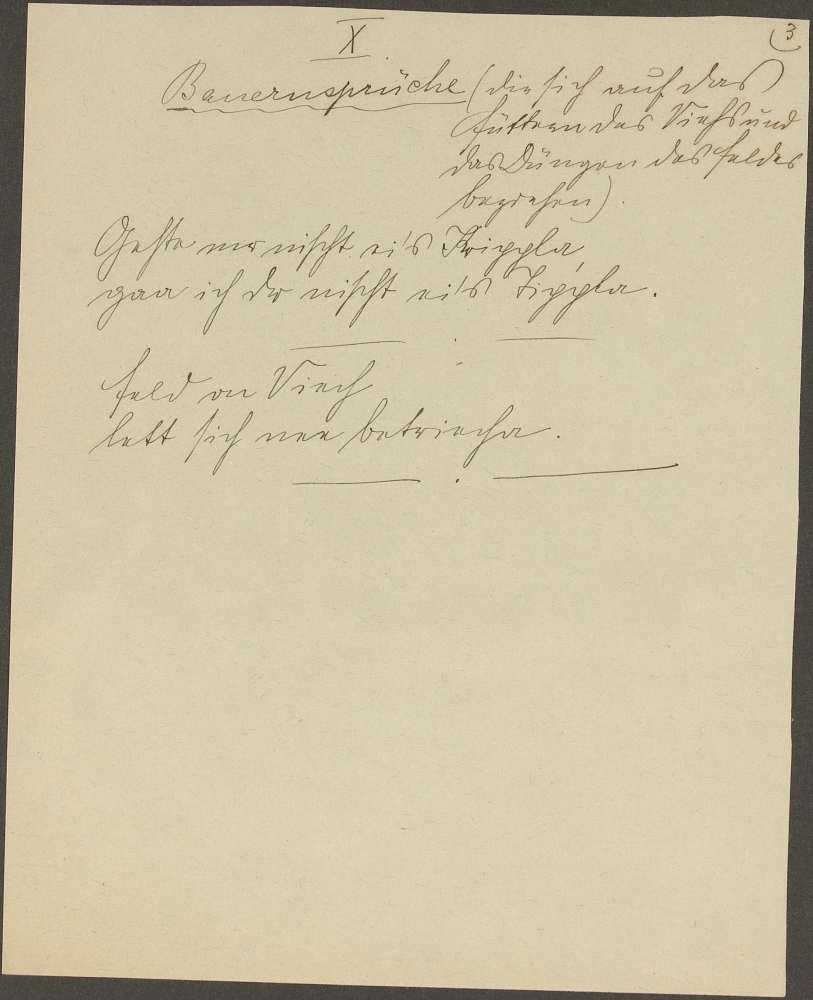 3
X
Bauernsprüche (die sich auf das
Füttern des Viehs und
das Düngen des Feldes
beziehen).
Gehste mr nischt ei's Krippla,
gaa ich dr nischt ei's Tippla.
Feld on Viech
lett sich nee betriecha.